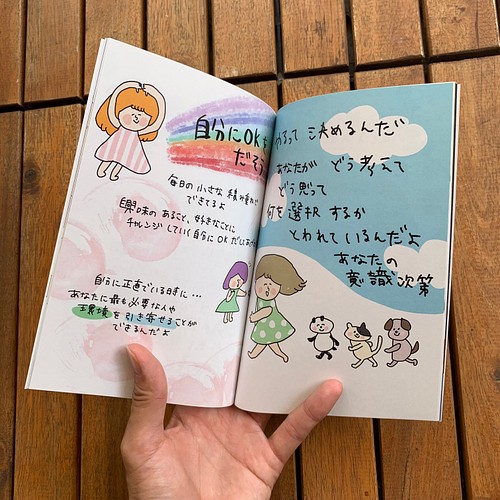 自分にOKを
だそう
毎日の小さな積み重ねで
できてるよ
興味のあること、好きなことに
チャレンジしていく自分にOKだしあげ
自分に正直でいる時に…
あなたに最も必要な人や
環境を引き寄せることが
できるんだよ
るって決めるんだ
あなたがどう考えて
どう思って
何を選択するか
とわれているんだよ
あなたの
意識次第